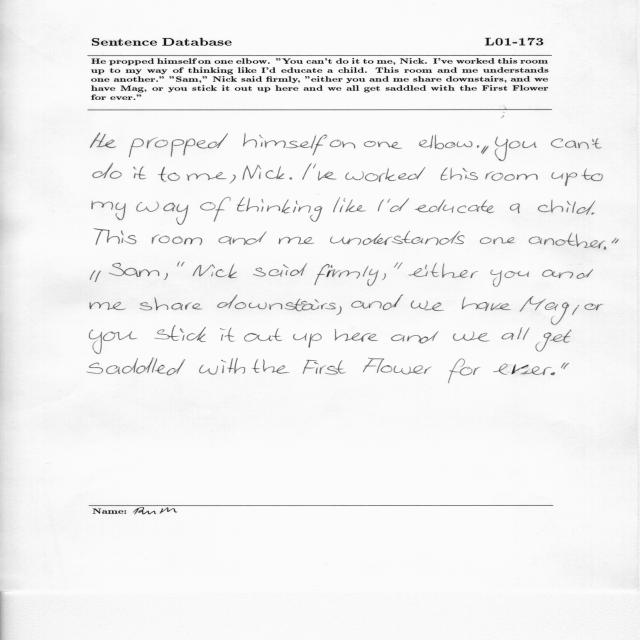 Sentence Database L01-173
He propped himself on one elbow. "You can't do it to me, Nick. I've worked this room
up to my way of thinking like I'd educate a child. This room and me understands
one another." "Sam," Nick said firmly, "either you and me share downstairs, and we
have Mag, or you stick it out up here and we all get saddled with the First Flower
for ever."
He propped himself on one elbow. „You can't
do it to me, Nick. I've worked this room up to
my way of thinking like I'd educate a child.
This room and me understands one another."
„Sam," Nick said firmly, "either you and
me share downstairs, and we have Mag, or
you stick it out up here and we all get
saddled with the First Flower for ever."
Name: